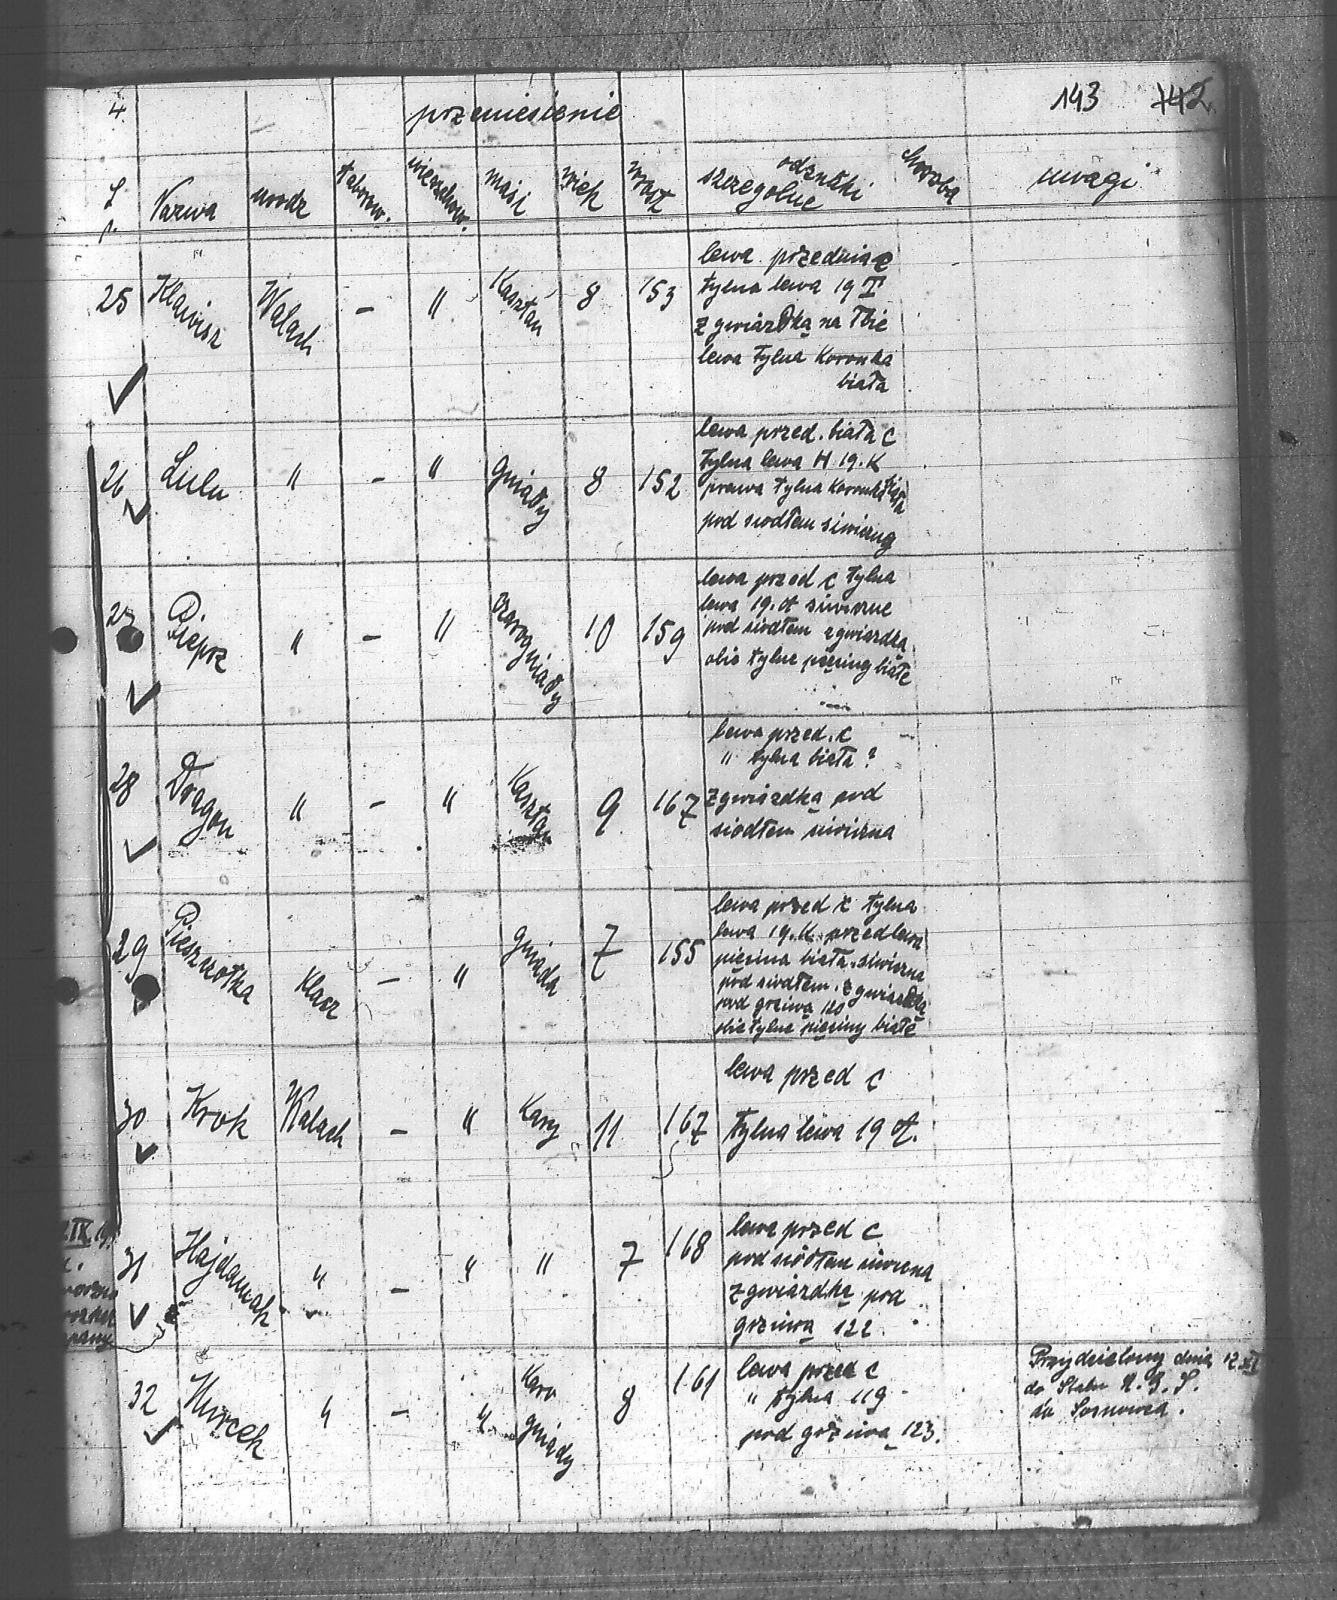 4.
przeniesienie
143 142
L p.
Nazwa
urodz
taborow.
wierzchow.
maść
wiek
wzost
odznaki szczególne
choroba
uwagi
25 Klawisz Wałach — " Kasztan 8 153
lewa przednia c
tylna lewa 19 I
z gwiazdką na łbie
lewa tylna Koronka
biała
26 Lulu " — " gniady 8 152
lewa przed. biała c
tylna lewa H 19. K
prawa tylna koronka
pod siodłem siwizny
27 Pieprz " — " 10 159
lewa przed c tylna
lewa 19. A siwizne
pod siodłem z gwiazdką
obie tylne pęciny białe
28 Dragon " — " Kasztan 9 167
lewa przed. c
" tylna biała ?
z gwiazdką pod
siodłem siwizna
29 Pieszczotka Klacz — " gniada 7 155
lewa przed c tylna
lewa 19. K. przed lewa
pięcina biała. siwizna
pod siodłem. z gwiazdką
pod grzywą 120
obie tylne pięciny białe
30 Krok Wałach — " Kary 11 167
lewa przed c
tylna lewa 19 A.
31 Hajdamak " — " " 7 168
lewa przed c
pod siodłem siwizna
z gwiazdką pod
grzywą 122.
32 " — " Karo gniady 8 161
lewa przed c
" tylna 119
pod grzywą 123.
Przydzielony dnia 17 XI
do Sztabu
do Sosnowca.